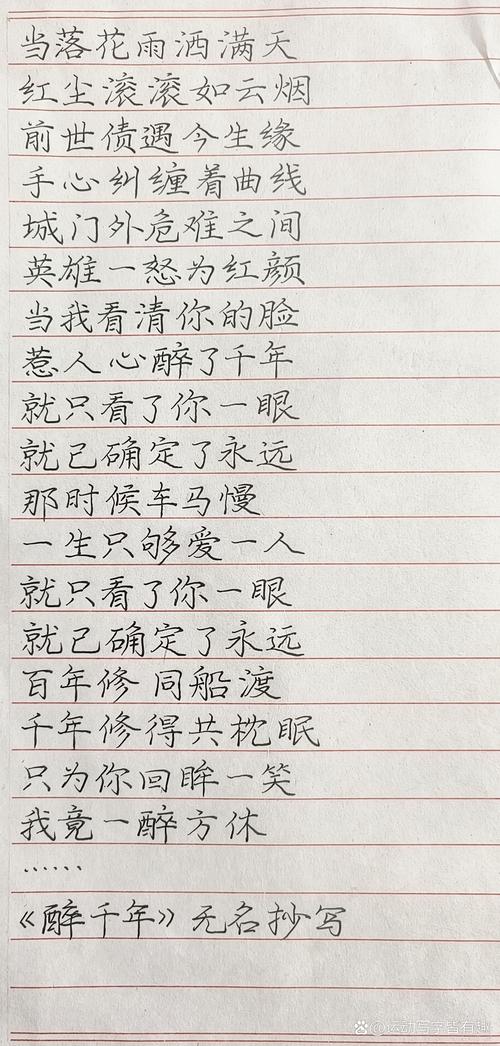 当落花雨洒满天
红尘滚滚如云烟
前世债遇今生缘
手心纠缠着曲线
城门外危难之间
英雄一怒为红颜
当我看清你的脸
惹人心醉了千年
就只看了你一眼
就已确定了永远
那时候车马慢
一生只够爱一人
就只看了你一眼
就已确定了永远
百年修 同船渡
千年修得共枕眠
只为你回眸一笑
我竟一醉方休
……
《醉千年》无名抄写
@运动写字皆有趣